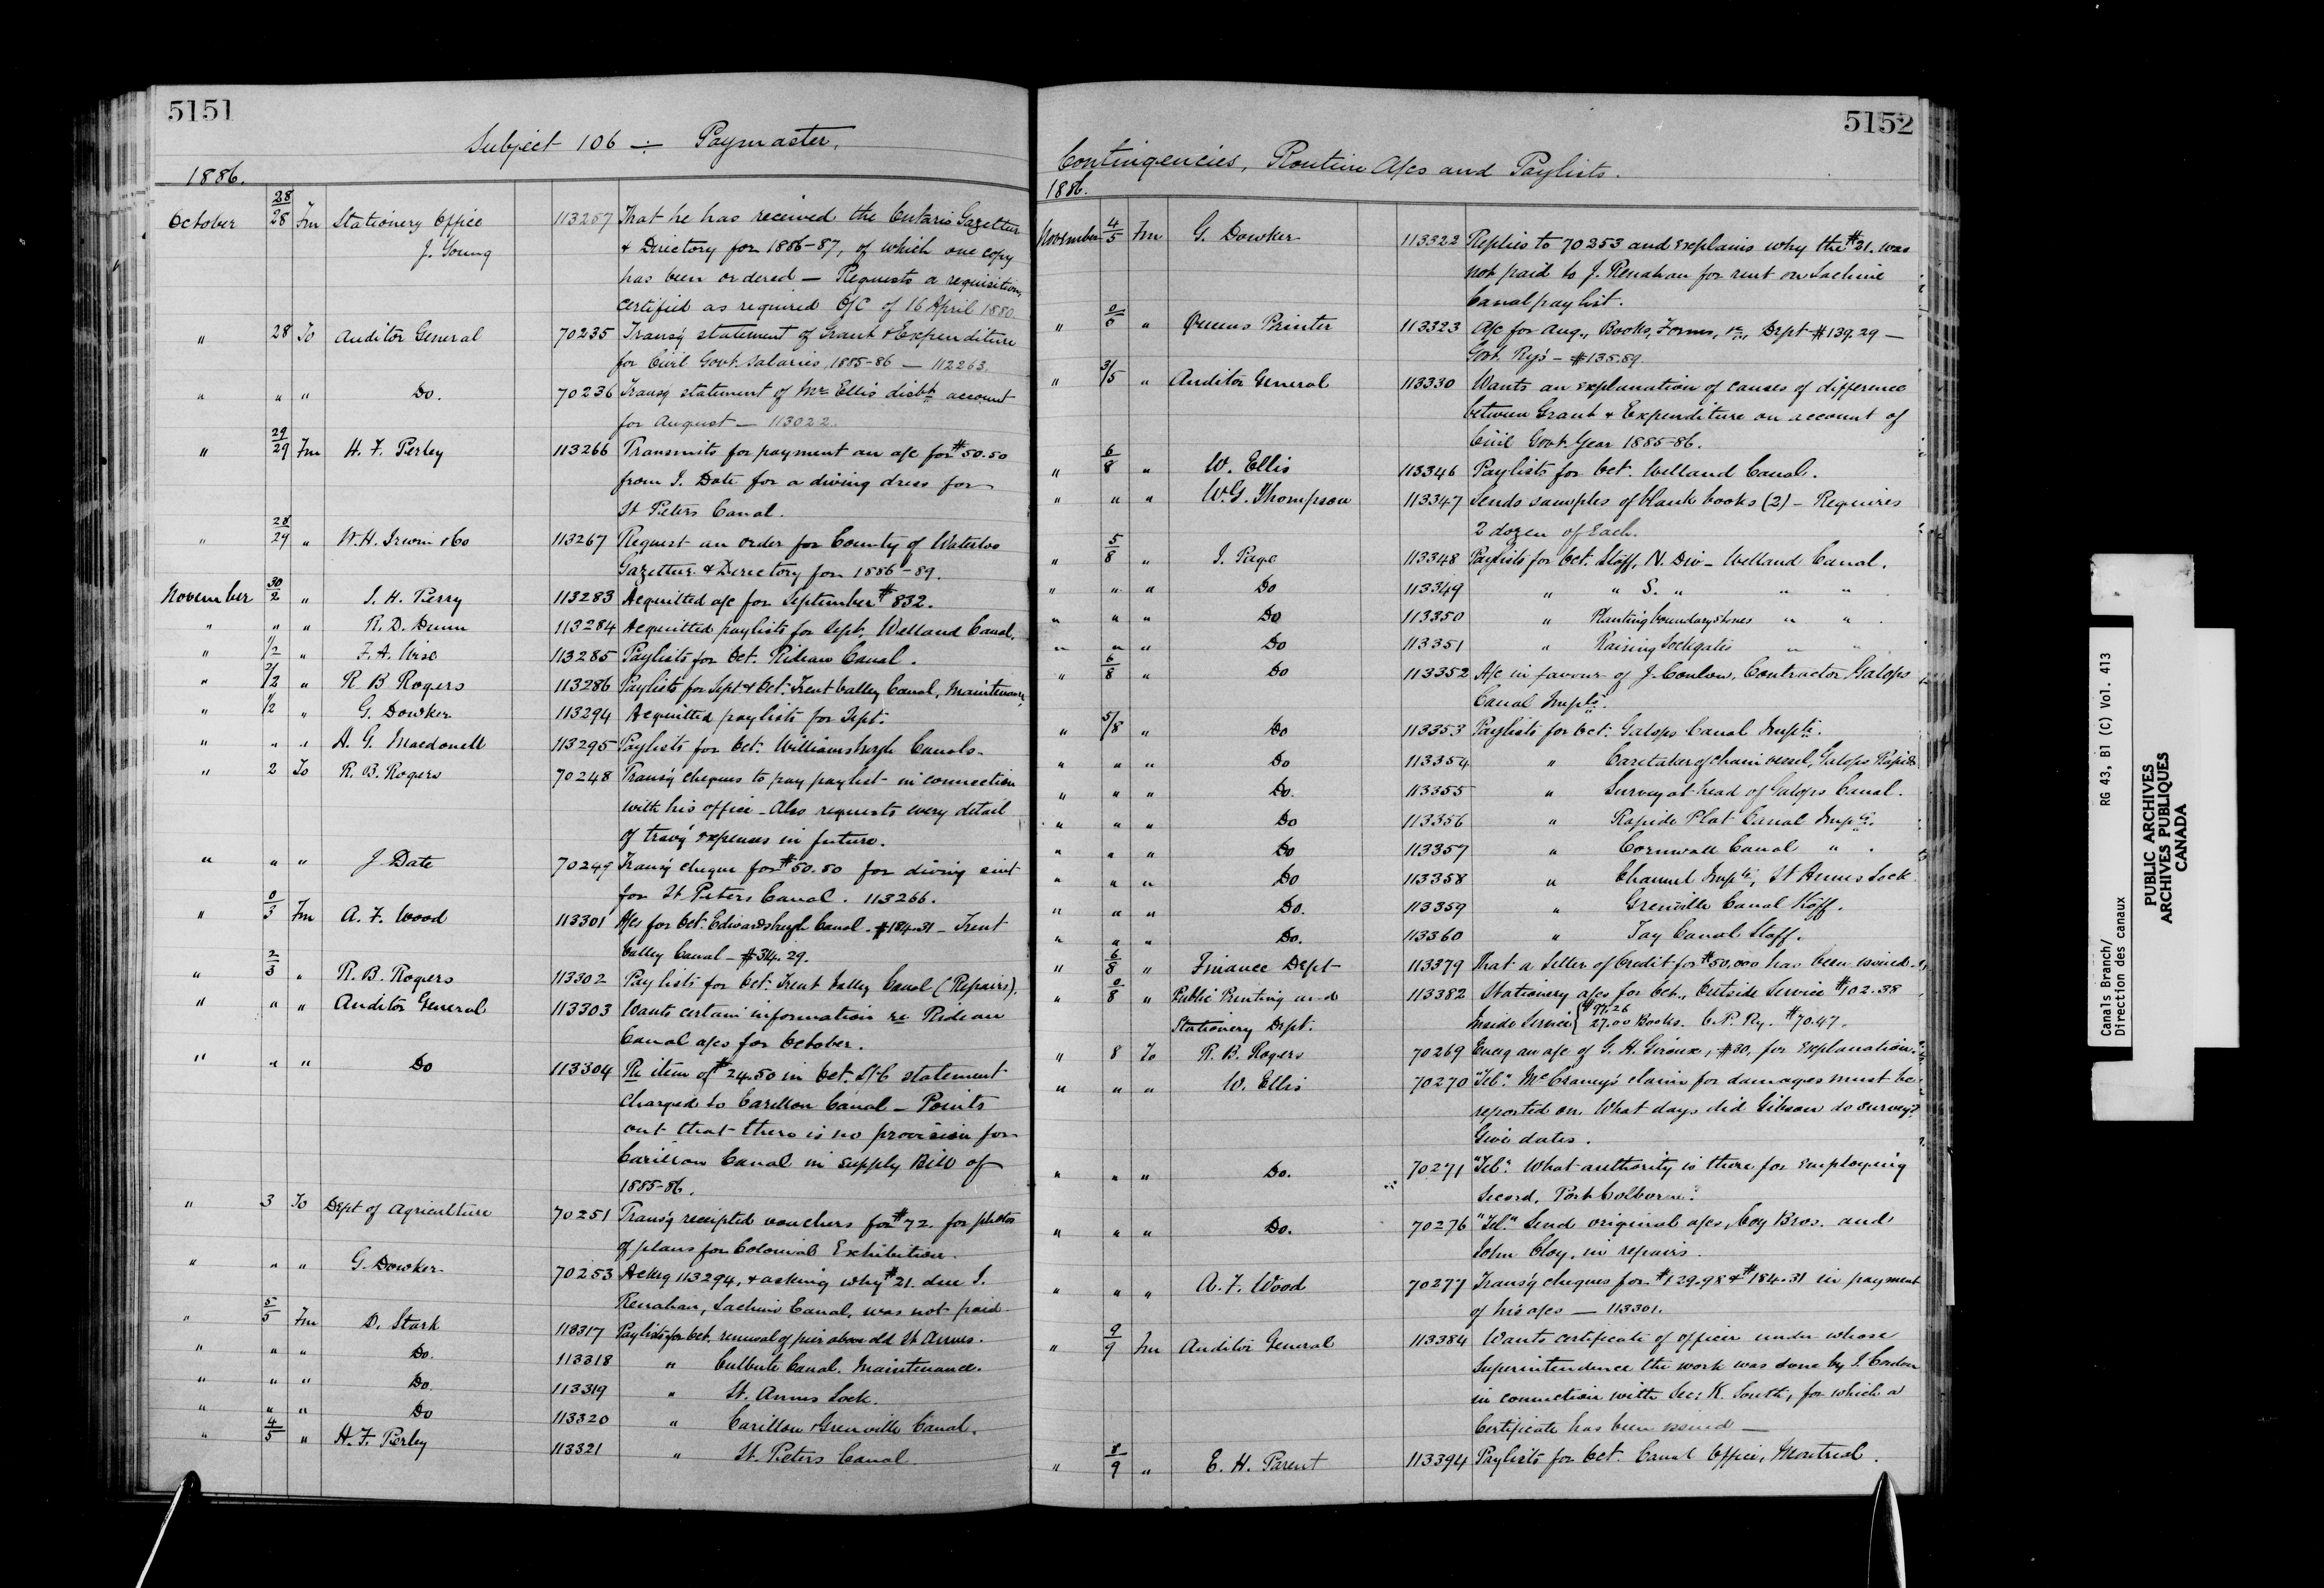 5151
Subject 106 ÷ Paymaster.
1886.
October 28/28 Fm Stationery Office 113257 That he has received the Ontario Gazetteer
J. Young & Directory for 1886-87, of which one copy
has been ordered — Requests a requisition,
certified as required O/C of 16 April 1880.
" 28 To Auditor General 70235 Transg statement of Grant & Expenditure
for Civil Govt. Salaries, 1885-86 — 112263.
" " " Do. 70236 Transg statement of Mr Ellis' disbt. account
for August — 113022.
" 29/29 Fm H. F. Perley 113266 Transmits for payment an a/c for $50.50
from J. Date for a diving dress for
St Peters Canal.
" 28/29 " W. H. Irwin & Co 113267 Request an order for County of Waterloo
Gazetteer & Directory for 1886-89.
November 30/2 " S. H. Perry 113283 Acquitted a/c for September $832.
" " " R. D. Dunn 113284 Acquitted paylists for Sept. Welland Canal.
" 1/2 " F. A. Wise 113285 Paylists for Oct. Rideau Canal.
" 2/2 " R B Rogers 113286 Paylists for Sept & Oct. Trent Valley Canal, Maintenance.
" 1/2 " G. Dowker 113294 Acquitted paylists for Sept.
" " " A. G. Macdonell 113295 Paylists for Oct. Williamsburgh Canals.
" 2 To R. B. Rogers 70248 Transg cheques to pay paylist in connection
with his office. Also requests very detail
of travg expenses in future.
" " " J Date 70249 Transg cheque for $50.50 for diving suit
for St Peters Canal. 113266.
" 0/3 Fm A. F. Wood 113301 A/cs for Oct. Edwardsburgh Canal. $184.31 — Trent
Valley Canal — $314.29.
" 2/3 " R. B. Rogers 113302 Paylists for Oct. Trent Valley Canal (Repairs).
" " " Auditor General 113303 Wants certain information re Rideau
Canal a/cs for October.
" " " Do 113304 Re item of $24.50 in Oct. St-6 statement
charged to Carillon Canal — Points
out that there is no provision for
Carillon Canal in Supply Bill of
1885-86.
" 3 To Dept of Agriculture 70251 Transg receipted vouchers for $72. for photos
of plans for Colonial Exhibition.
" " " G. Dowker 70253 Ackng 113294, & asking why $21. due J.
Renahan, Lachine Canal, was not paid
" 5/5 Fm D. Stark 113317 Paylists for Oct. renewal of pier above old St Annes.
" " " Do. 113318 " Culbute Canal. Maintenance.
" " " Do. 113319 " St. Annes Lock.
" " " Do 113320 " Carillon & Grenville Canal.
" 4/5 " H. F. Perley 113321 " St. Peters Canal.
5152
Contingencies, Routine A/cs and Paylists.
1886.
November 4/5 Fm G. Dowker 113322 Replies to 70253 and explains why the $21. was
not paid to J. Renahan for rent on Lachine
Canal paylist.
" 0/5 " Queens Printer 113323 A/c for Aug., Books, Forms, &c, Dept $139.29 —
Govt. Rys — $135.89.
" 3/5 " Auditor General 113330 Wants an explanation of causes of difference
between Grant & Expenditure on account of
Civil Govt. Year 1885-86.
" 6/8 " W. Ellis 113346 Paylists for Oct. Welland Canal.
" " " W. G. Thompson 113347 Sends samples of blank books (2) — Requires
2 dozen of each.
" 5/8 " J. Page 113348 Paylists for Oct. Staff, N. Div — Welland Canal.
" " " Do 113349 " " S. " " "
" " " Do 113350 " Planting boundary stones " "
" " " Do 113351 " Raising Lockgates " "
" 6/8 " Do 113352 A/c in favour of J. Conlon, Contractor Galops
Canal Impts.
" 5/8 " Do 113353 Paylists for Oct. Galops Canal Impts.
" " " Do 113354 " Caretaker of chain vessel, Galops Rapids
" " " Do. 113355 " Survey at head of Galops Canal.
" " " Do 113356 " Rapide Plat Canal Impts.
" " " Do 113357 " Cornwall Canal "
" " " Do 113358 " Channel Impts, St Annes Lock
" " " Do. 113359 " Grenville Canal Staff.
" " " Do. 113360 " Tay Canal Staff.
" 6/8 " Finance Dept 113379 That a Letter of Credit for $50,000 has been issued.
" 0/8 " Public Printing and 113382 Stationery a/cs for Oct., Outside Service $102.38
Stationery Dept. Inside Service { $97.26 27.00 Books. C. P. Ry. $70.47.
" 8 To R. B. Rogers 70269 Encg an a/c of G. H. Giroux, $30, for explanation.
" " " W. Ellis 70270 "Tel." McCraney's claim for damages must be
reported on. What days did Gibson do survey?
Give dates.
" " " Do. 70271 "Tel." What authority is there for employing
Secord, Port Colborne?
" " " Do. 70276 "Tel." Send original a/cs, Coy Bros. and
John Cloy, in repairs.
" " " A. F. Wood 70277 Transg cheques for $129.98 & $184.31 in payment
of his a/cs — 113301.
" 9/9 Fm Auditor General 113384 Wants certificate of officer under whose
superintendence the work was done by J.
in connection with Sec: K. South, for which a
Certificate has been issued —
" 8/9 " E. H. Parent 113394 Paylists for Oct. Canal Office, Montreal.
Canals Branch/ RG 43, B1 (C) Vol. 413
Direction des canaux
PUBLIC ARCHIVES
ARCHIVES PUBLIQUES
CANADA